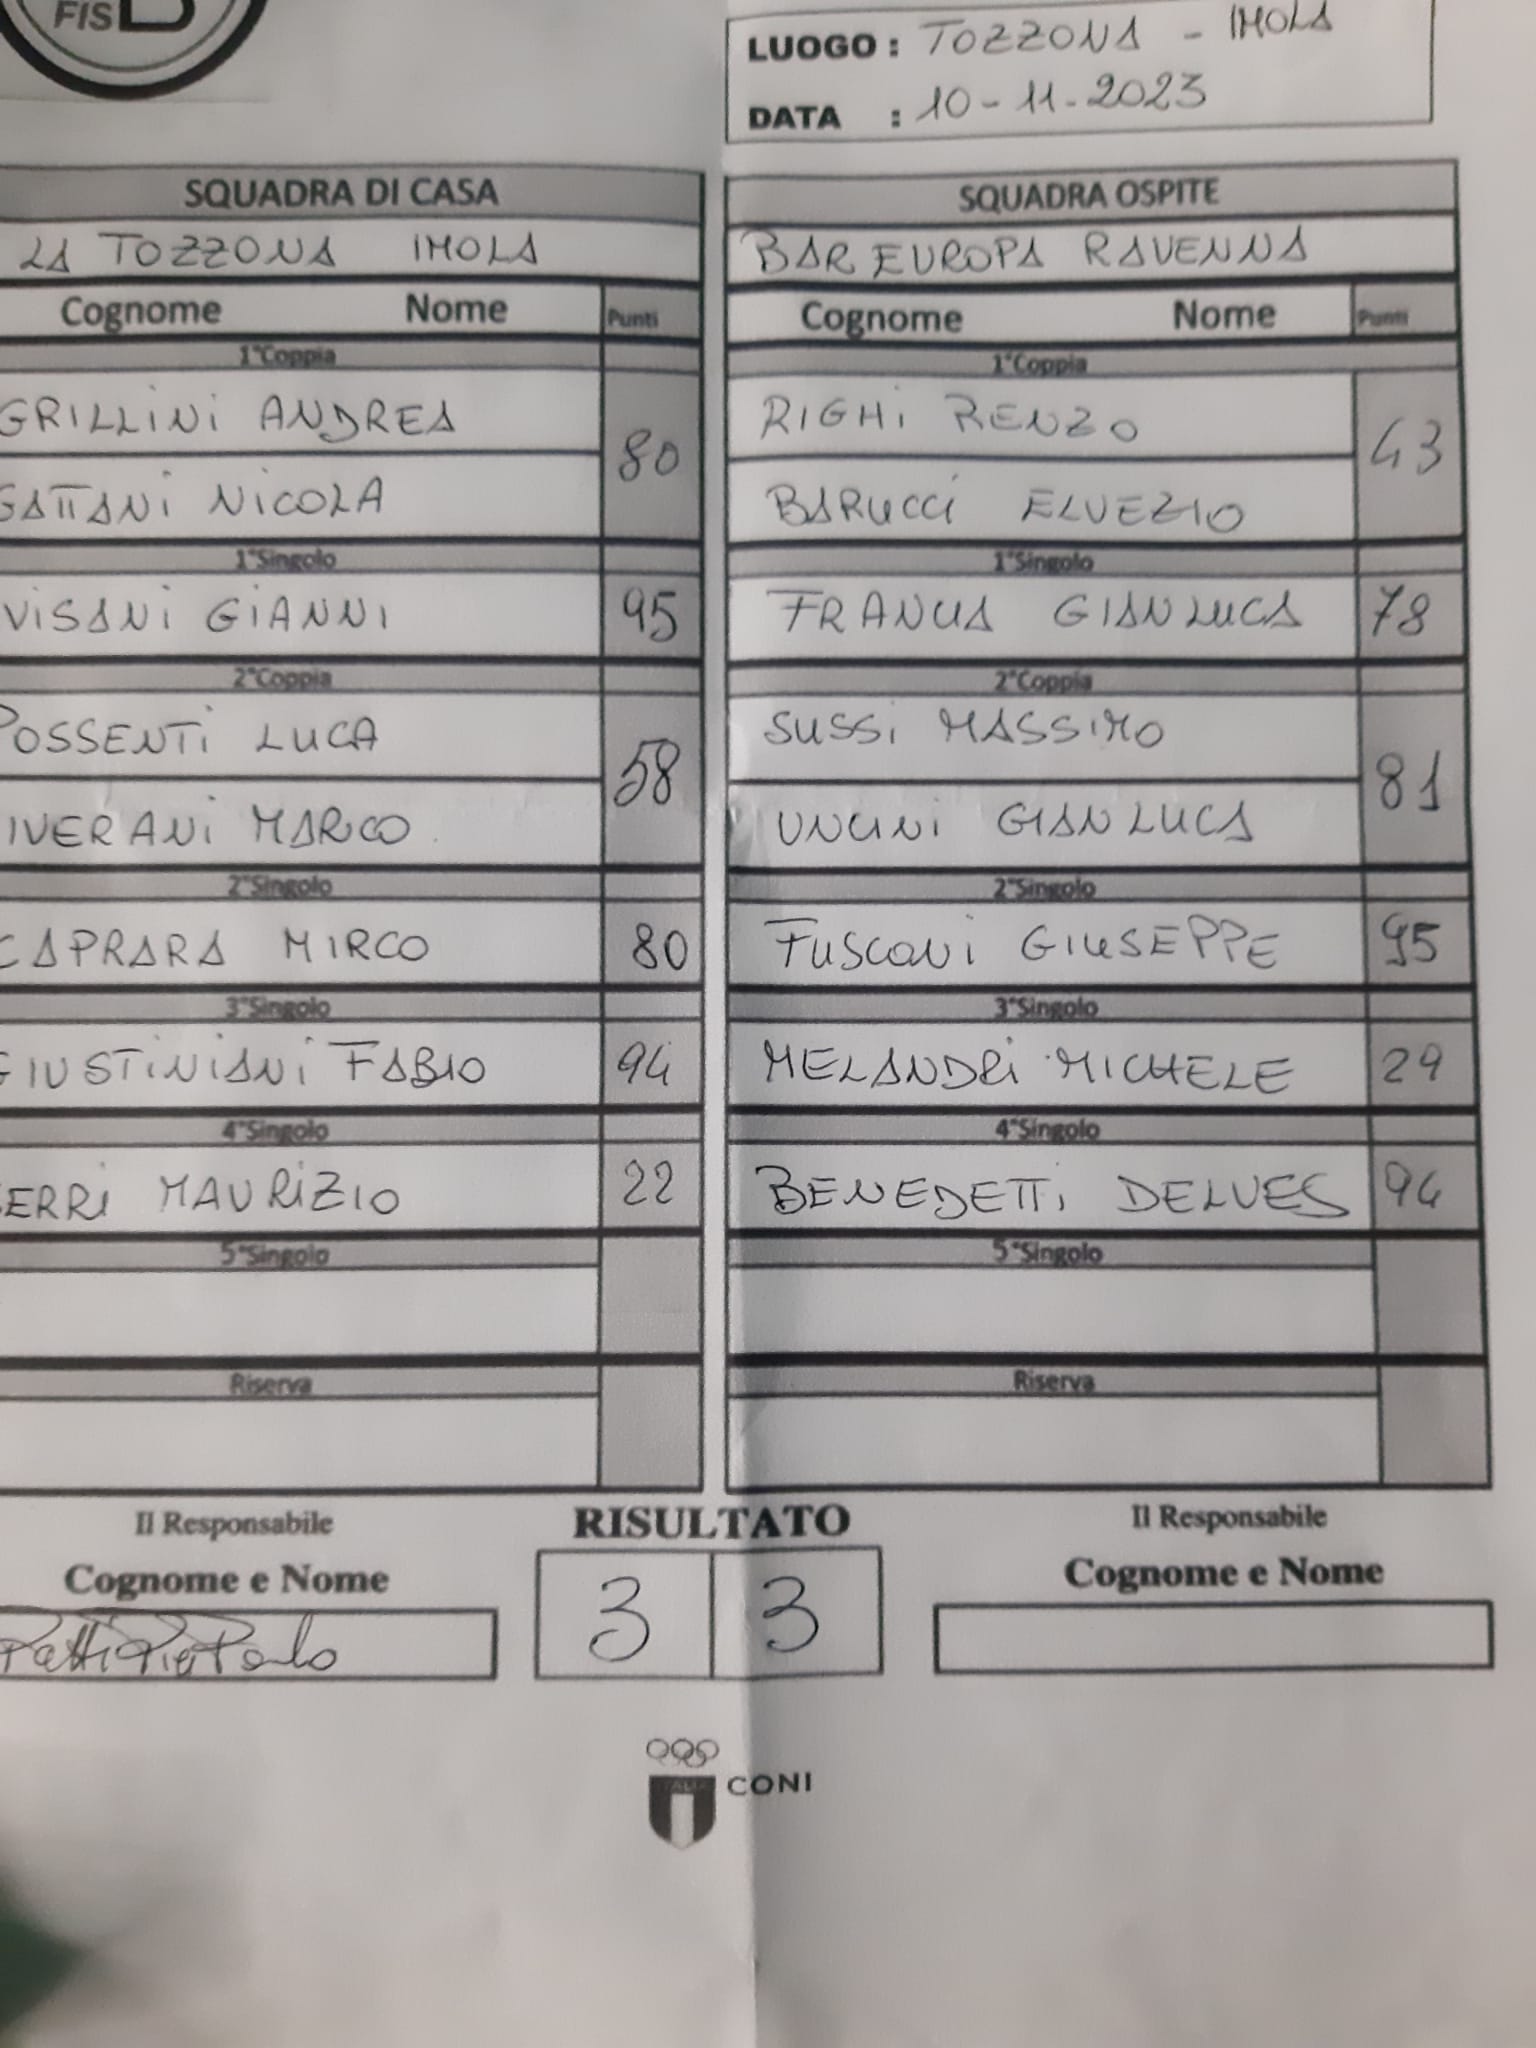 FIS B
LUOGO : TOZZONA - IMOLA
DATA : 10-11-2023
SQUADRA DI CASA
SQUADRA OSPITE
LA TOZZONA IMOLA
BAR EUROPA RAVENNA
Cognome Nome Punti
Cognome Nome Punti
1°Coppia
1°Coppia
GRILLINI ANDREA
80
RIGHI RENZO
43
GATTANI NICOLA
BARUCCI ELVEZIO
1°Singolo
1°Singolo
VISANI GIANNI 95
FRANCIA GIANLUCA 78
2°Coppia
2°Coppia
POSSENTI LUCA
58
SUSSI MASSIMO
81
IVERANI MARCO
UNCINI GIANLUCA
2°Singolo
2°Singolo
CAPRARA MIRCO 80
FUSCONI GIUSEPPE 95
3°Singolo
3°Singolo
GIUSTINIANI FABIO 94
MELANDRI MICHELE 29
4°Singolo
4°Singolo
ERRI MAURIZIO 22
BENEDETTI DELVES 94
5°Singolo
5°Singolo
Riserva
Riserva
Il Responsabile
RISULTATO
Il Responsabile
Cognome e Nome
3 3
Cognome e Nome
Patti Pier Paolo
ITALIA
CONI